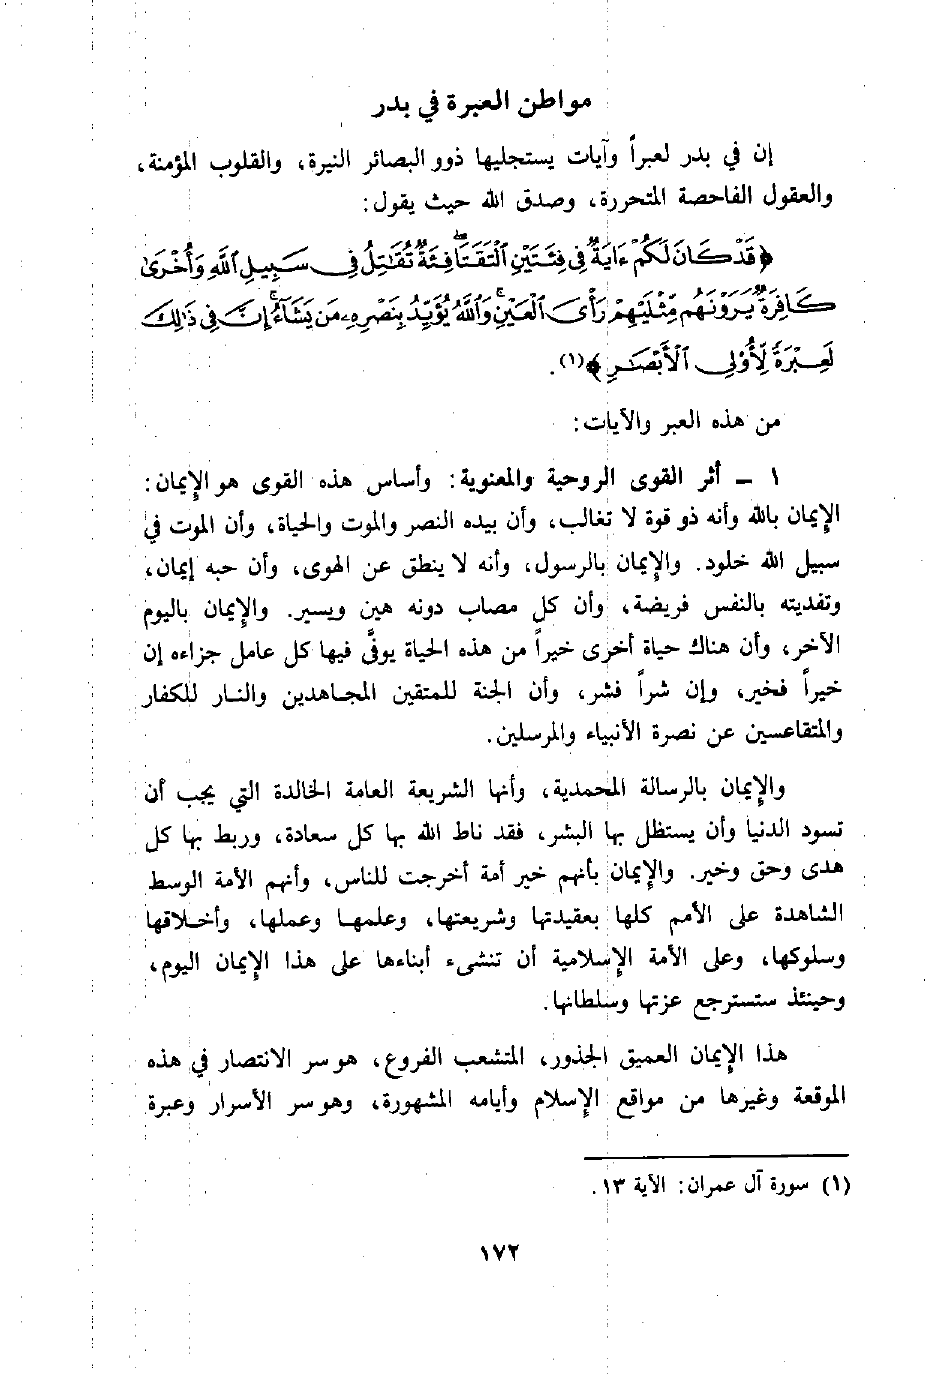 مواطن العبرة في بدر
إن في بدر لعبراً وآيات يستجليها ذوو البصائر النيرة، والقلوب المؤمنة،
والعقول الفاحصة المتحررة، وصدق الله حيث يقول:
﴿قَدْ كَانَ لَكُمْ ءَايَةٌ فِي فِئَتَيْنِ الْتَقَتَا ۖ فِئَةٌ تُقَاتِلُ فِي سَبِيلِ اللَّهِ وَأُخْرَىٰ
كَافِرَةٌ يَرَوْنَهُم مِّثْلَيْهِمْ رَأْيَ الْعَيْنِ ۚ وَاللَّهُ يُؤَيِّدُ بِنَصْرِهِ مَن يَشَآءُ ۗ إِنَّ فِي ذَٰلِكَ
لَعِبْرَةً لِّأُوْلِي الْأَبْصَـٰرِ﴾(١).
من هذه العبر والآيات:
١ - أثر القوى الروحية والمعنوية: وأساس هذه القوى هو الإيمان:
الإيمان بالله وأنه ذو قوة لا تغالب، وأن بيده النصر والموت والحياة، وأن الموت في
سبيل الله خلود. والإيمان بالرسول، وأنه لا ينطق عن الهوى، وأن حبه إيمان،
وتفديته بالنفس فريضة، وأن كل مصاب دونه هين ويسير. والإيمان باليوم
الآخر، وأن هناك حياة أخرى خيراً من هذه الحياة يوفَّى فيها كل عامل جزاءه إن
خيراً فخير، وإن شراً فشر، وأن الجنة للمتقين المجاهدين والنار للكفار
والمتقاعسين عن نصرة الأنبياء والمرسلين.
والإيمان بالرسالة المحمدية، وأنها الشريعة العامة الخالدة التي يجب أن
تسود الدنيا وأن يستظل بها البشر، فقد ناط الله بها كل سعادة، وربط بها كل
هدى وحق وخير. والإيمان بأنهم خير أمة أخرجت للناس، وأنهم الأمة الوسط
الشاهدة على الأمم كلها بعقيدتها وشريعتها، وعلمها وعملها، وأخلاقها
وسلوكها، وعلى الأمة الإسلامية أن تنشىء أبناءها على هذا الإيمان اليوم،
وحينئذ ستسترجع عزتها وسلطانها.
هذا الإيمان العميق الجذور، المتشعب الفروع، هو سر الانتصار في هذه
الموقعة وغيرها من مواقع الإسلام وأيامه المشهورة، وهو سر الأسرار وعبرة
(١) سورة آل عمران: الآية ١٣.
١٧٢